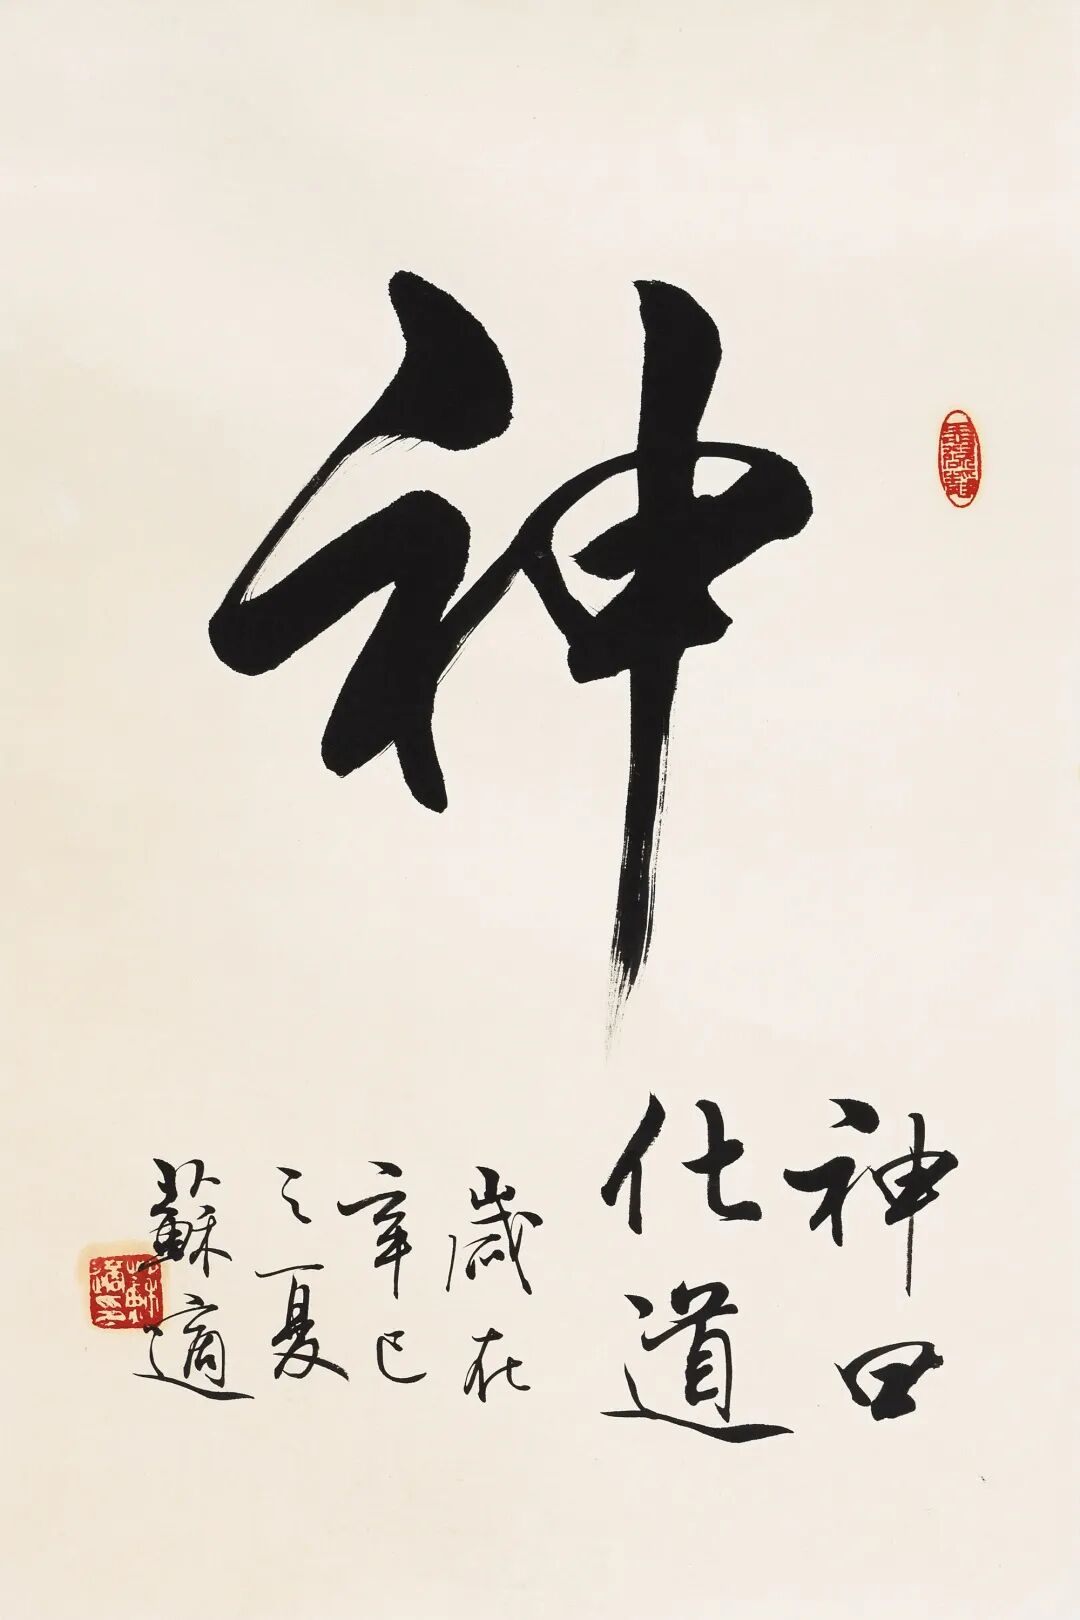 神
神曰
化道
歲在
辛巳
之夏
蘇適